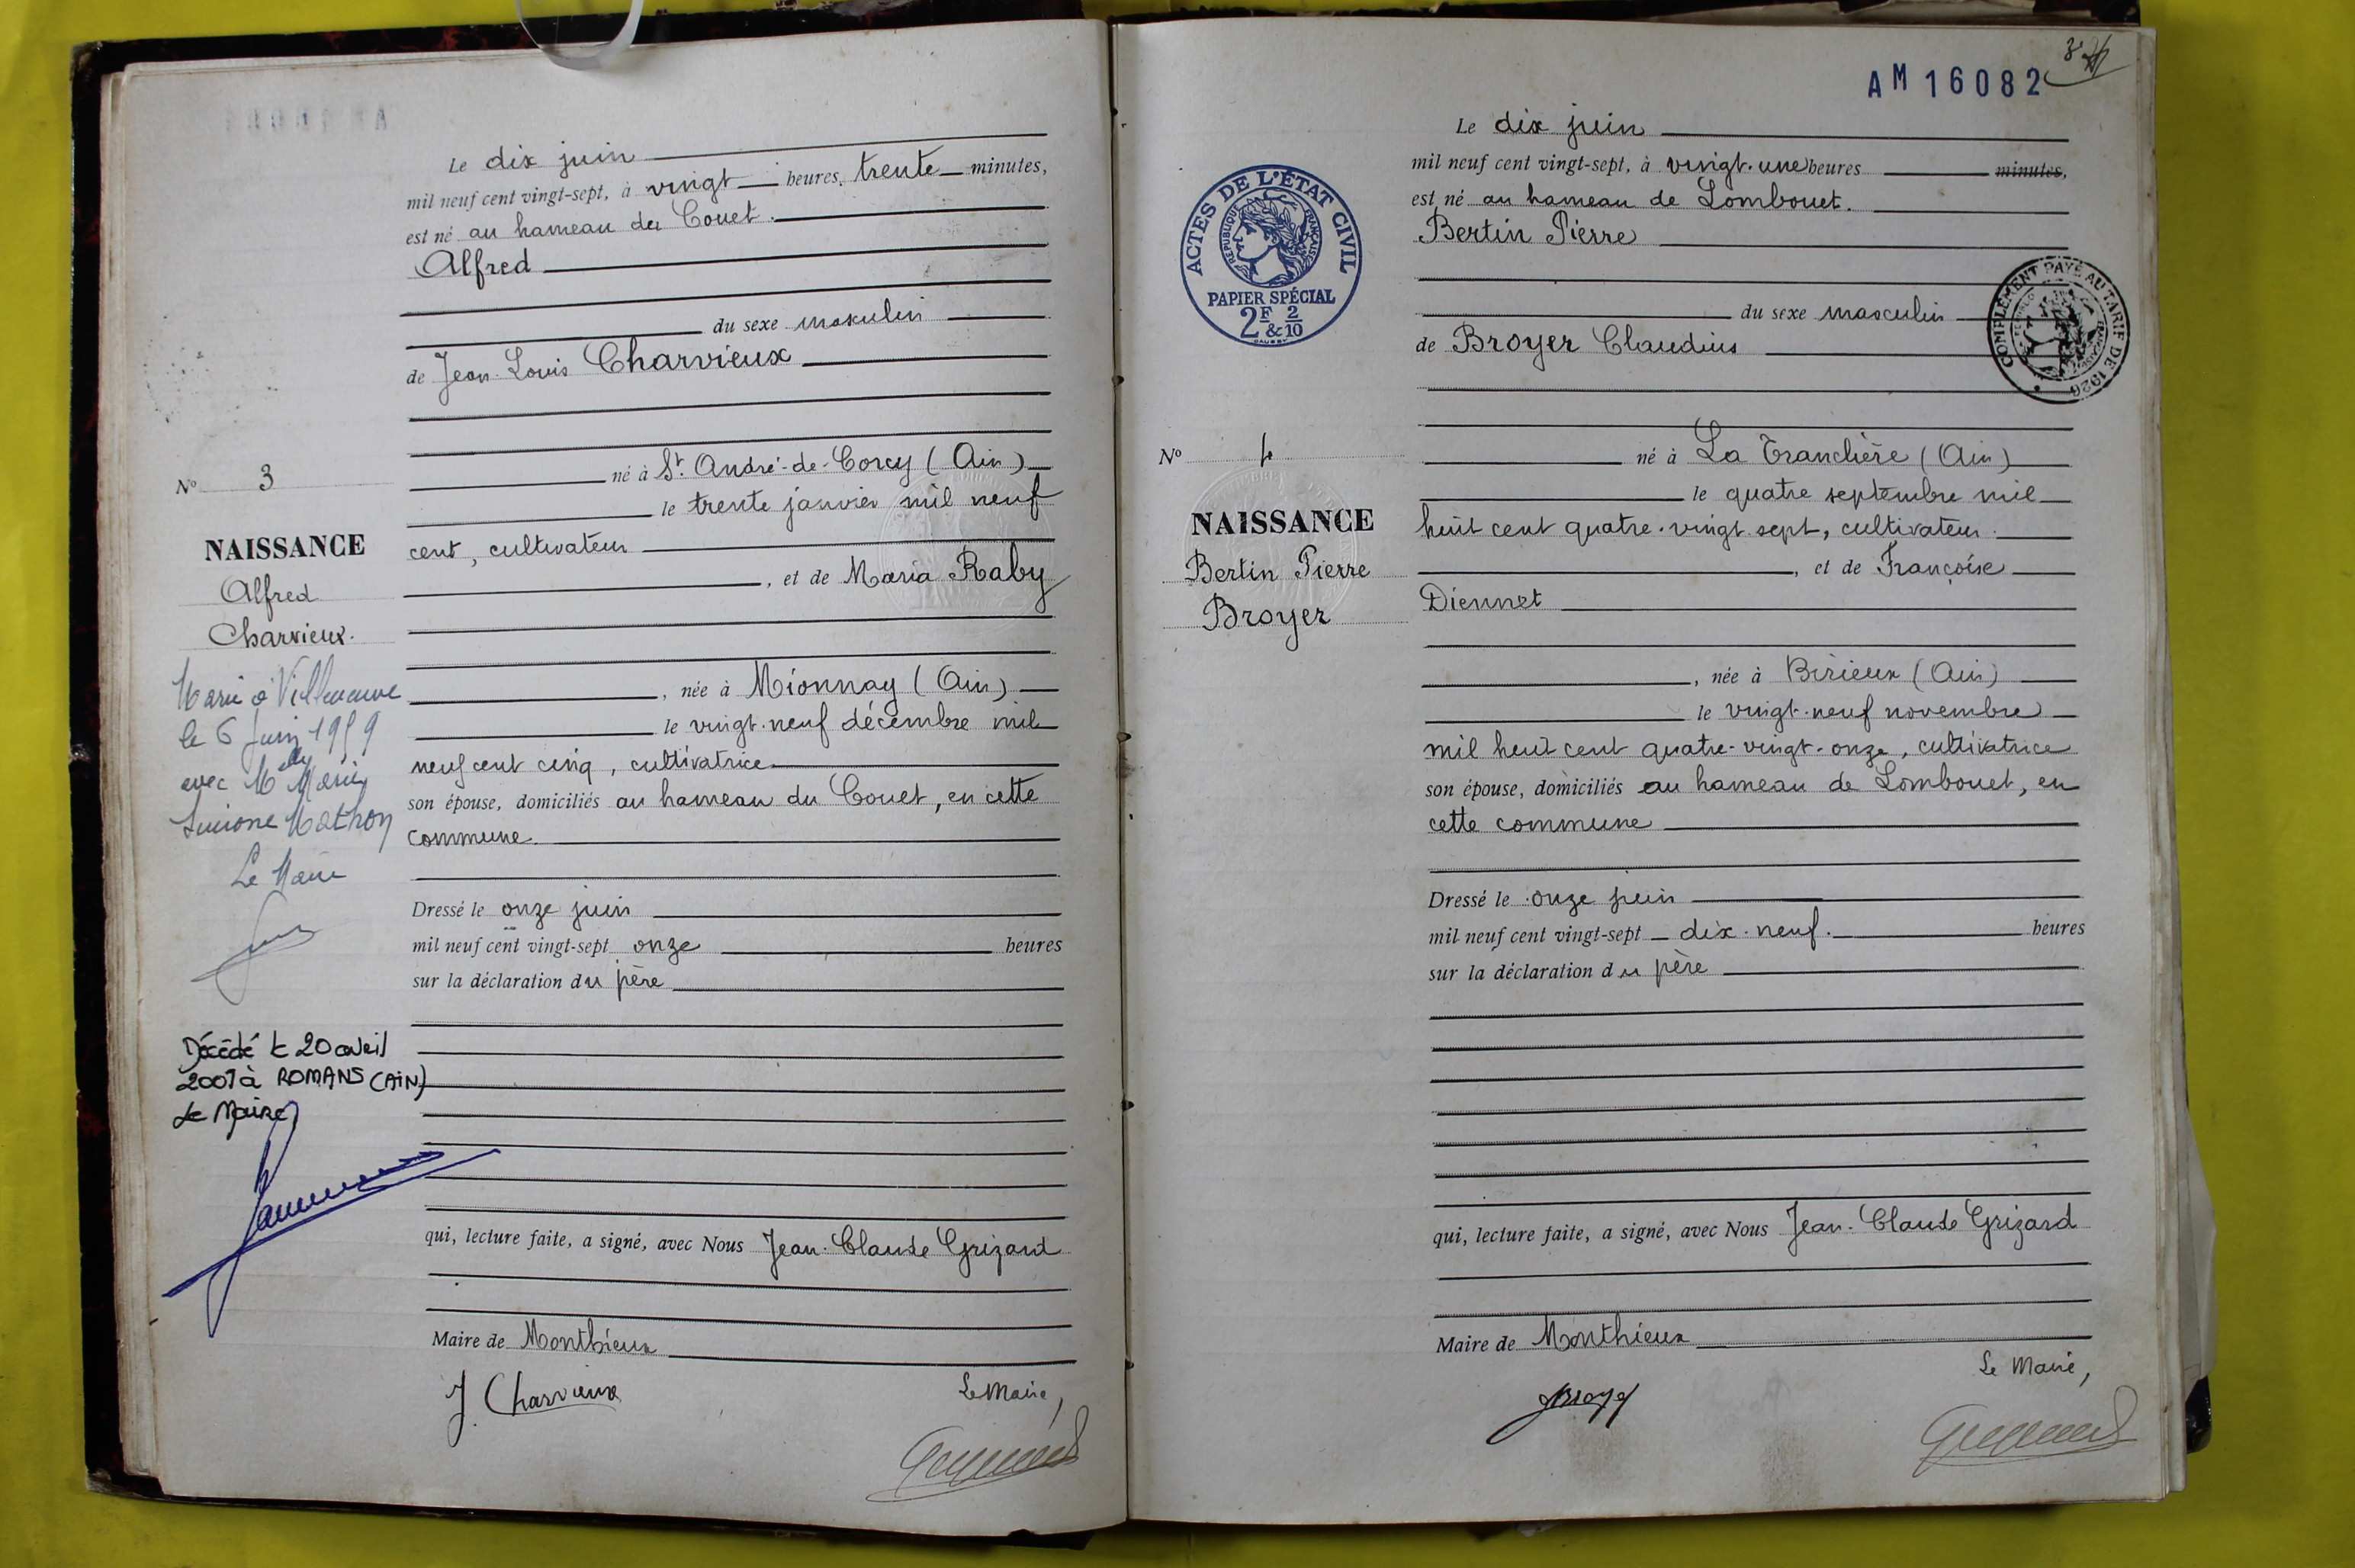 Le dix juin
mil neuf cent vingt-sept, à vingt heures, trente minutes,
est né au hameau du Couet.
Alfred
du sexe masculin
de Jean-Louis Charvieux
né à St. André-de-Corcy (Ain)
le trente janvier mil neuf
cent, cultivateur
, et de Maria Raby
, née à Mionnay (Ain)
le vingt-neuf décembre mil
neuf cent cinq, cultivatrice
son épouse, domiciliés au hameau du Couet, en cette
commune.
Dressé le onze juin
mil neuf cent vingt-sept onze heures
sur la déclaration du père
qui, lecture faite, a signé, avec Nous Jean-Claude Grizard
Maire de Monthieux
J. Charvieux
Le Maire,
N° 3
NAISSANCE
Alfred
Charvieux.
Marié à Villeneuve
le 6 Juin 1959
avec Melle Marie
Simone Mathon
Le Maire
Décédé le 20 avril
2007 à ROMANS (AIN)
Le Maire
AM 16082
Le dix juin
mil neuf cent vingt-sept, à vingt-une heures minutes,
est né au hameau de Lombouet.
Bertin Pierre
du sexe masculin
de Broyer Claudius
né à La Tranclière (Ain)
le quatre septembre mil
huit cent quatre-vingt sept, cultivateur.
, et de Françoise
Diennet
, née à Birieux (Ain)
le vingt-neuf novembre
mil huit cent quatre-vingt-onze, cultivatrice
son épouse, domiciliés au hameau de Lombouet, en
cette commune
Dressé le onze juin
mil neuf cent vingt-sept dix-neuf. heures
sur la déclaration du père
qui, lecture faite, a signé, avec Nous Jean-Claude Grizard
Maire de Monthieux
Le Maire,
ACTES DE L'ÉTAT CIVIL
RÉPUBLIQUE FRANÇAISE
PAPIER SPÉCIAL
2F & 2/10
COMPLÉMENT PAYÉ AU TARIF DE 1926
N° 4
NAISSANCE
Bertin Pierre
Broyer